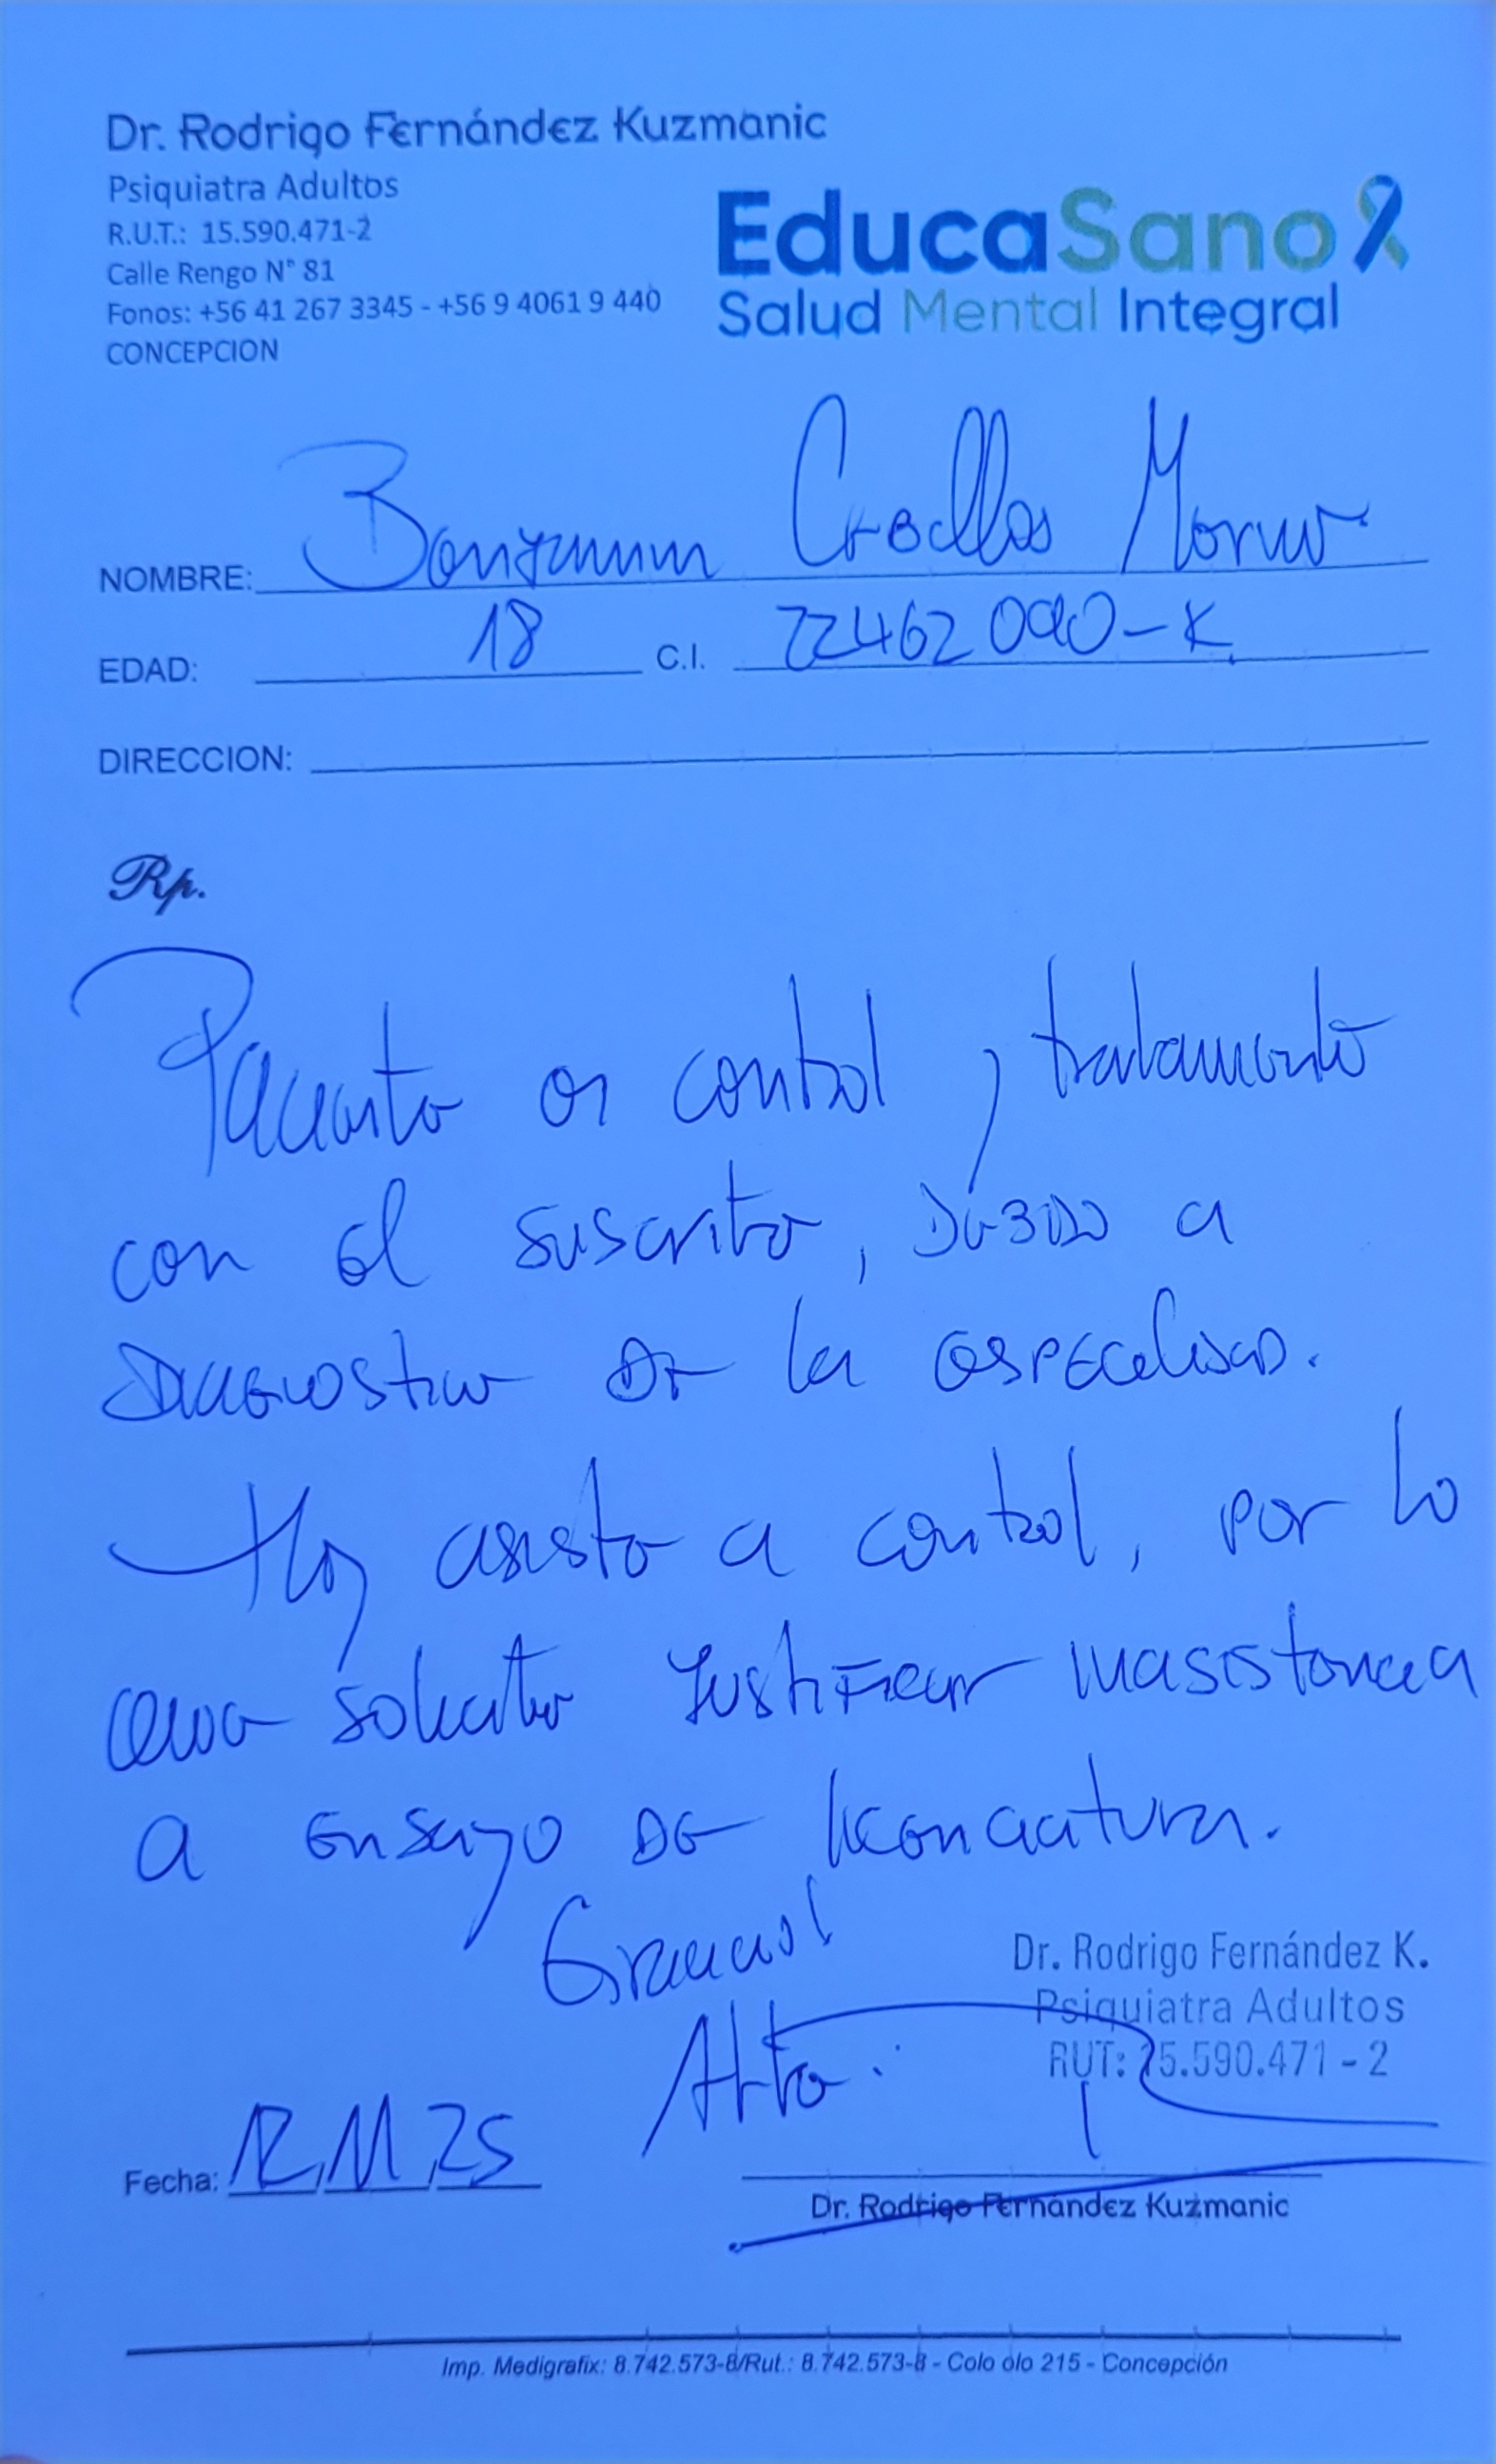 Dr. Rodrigo Fernández Kuzmanic
Psiquiatra Adultos
R.U.T.: 15.590.471-2
Calle Rengo N° 81
Fonos: +56 41 267 3345 - +56 9 4061 9 440
CONCEPCION
EducaSano
Salud Mental Integral
NOMBRE: Benjamin
EDAD: 18 C.I. 22462090-K
DIRECCION:
Rp.
Paciente en control y tratamiento
con el suscrito, DEBIDO a
DIAGNOSTICO DE la ESPECIALIDAD.
Hoy asiste a control, por lo
que solicito JustiFicar inasistencia
a Ensayo DE licenciatura.
Gracias!
Atte:
Dr. Rodrigo Fernández K.
Psiquiatra Adultos
RUT: 15.590.471 - 2
Fecha: 12,11,25
Dr. Rodrigo Fernández Kuzmanic
Imp. Medigrafix: 8.742.573-8/Rut.: 8.742.573-8 - Colo olo 215 - Concepción